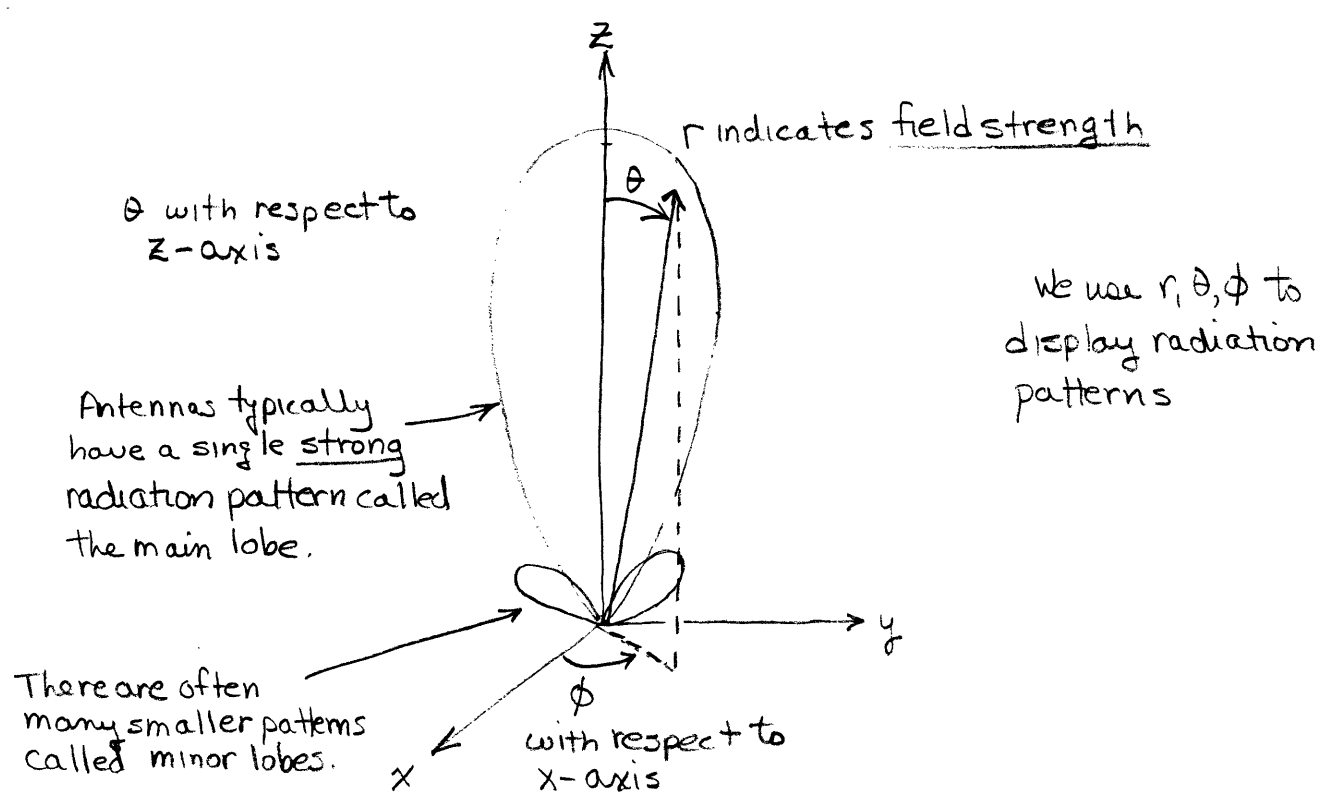 z
r indicates field strength
θ
θ with respect to
z-axis
We use r, θ, φ to
display radiation
patterns
Antennas typically
have a single strong
radiation pattern called
the main lobe.
y
There are often
many smaller patterns
called minor lobes.
φ
with respect to
x-axis
x